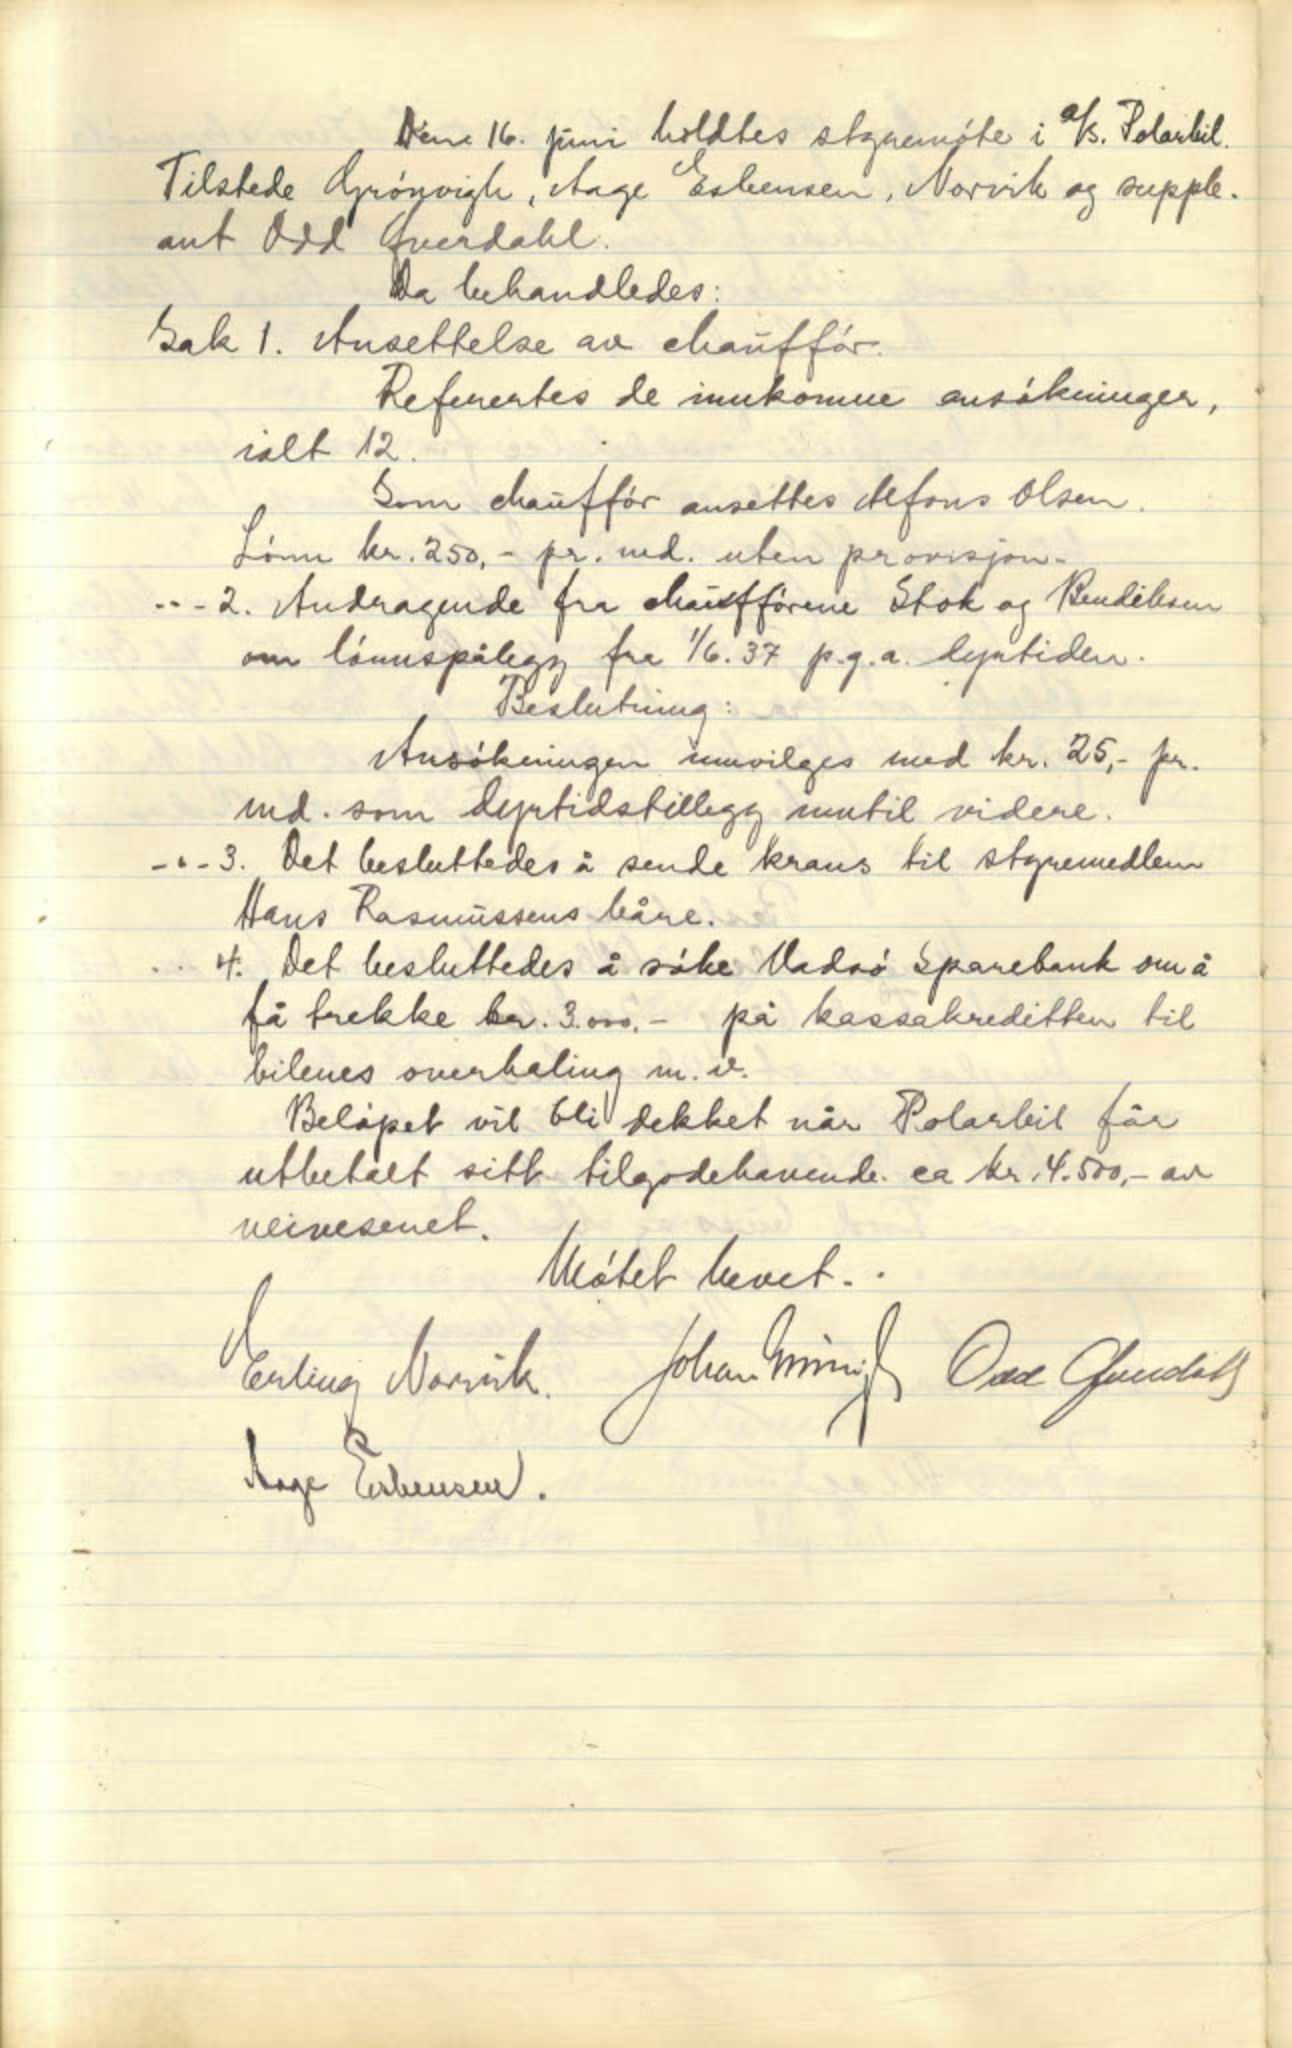 Den 16. juni holdtes styremöte i a/s. Polarbil.
Tilstede Grönvigh, Aage Esbensen, Norvik og supple-
ant Odd Gverdahl.
Da behandledes:
Sak 1. Ansettelse av chaufför.
Refererertes de innkomne ansökninger,
ialt 12.
Som chaufför ansettes Alfons Olsen.
Lönn kr. 250,- pr. md. uten provisjon-
-"- 2. Andragende fra chaufförene Stok og Bendiksen
om lönnspålegg fra 1/6. 37 p.g.a. dyrtiden.
Beslutning:
Ansökningen innvilges med kr. 25,- pr.
md. som dyrtidstillegg inntil videre.
-"- 3. Det besluttedes å sende krans til styremedlem
Hans Rasmussens båre.
-"- 4. Det besluttedes å söke Vadsö Sparebank om å
få trekke kr. 3.000,- på kassakreditten til
bilenes overhaling m. v.
Belöpet vil bli dekket når Polarbil får
utbetalt sitt tilgodehavende ca kr. 4.500,- av
veivesenet.
Mötet hevet.
Erling Norvik. Johan Grönvigh Odd Gverdahl
Aage Esbensen.